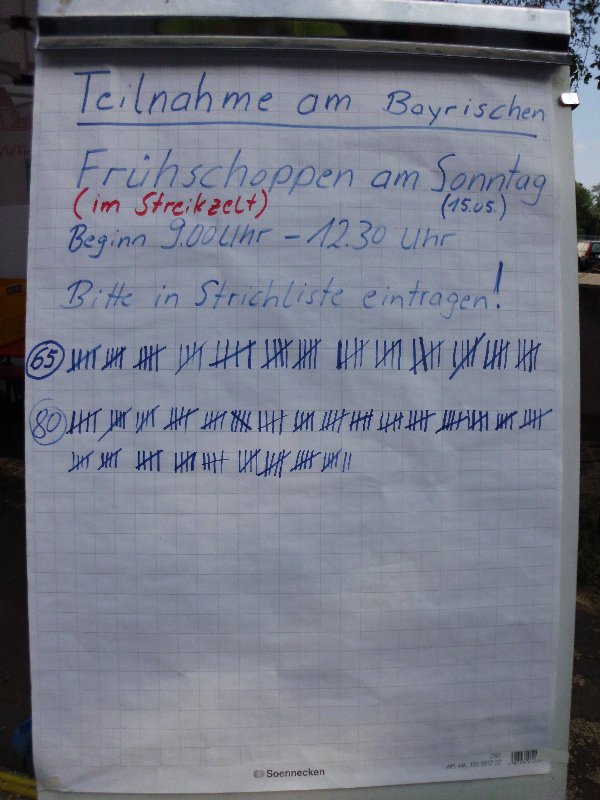 Teilnahme am Bayrischen
Frühschoppen am Sonntag
(im Streikzelt) (15.05.)
Beginn 9.00 Uhr - 12.30 Uhr
Bitte in Strichliste eintragen!
65
80
Soennecken